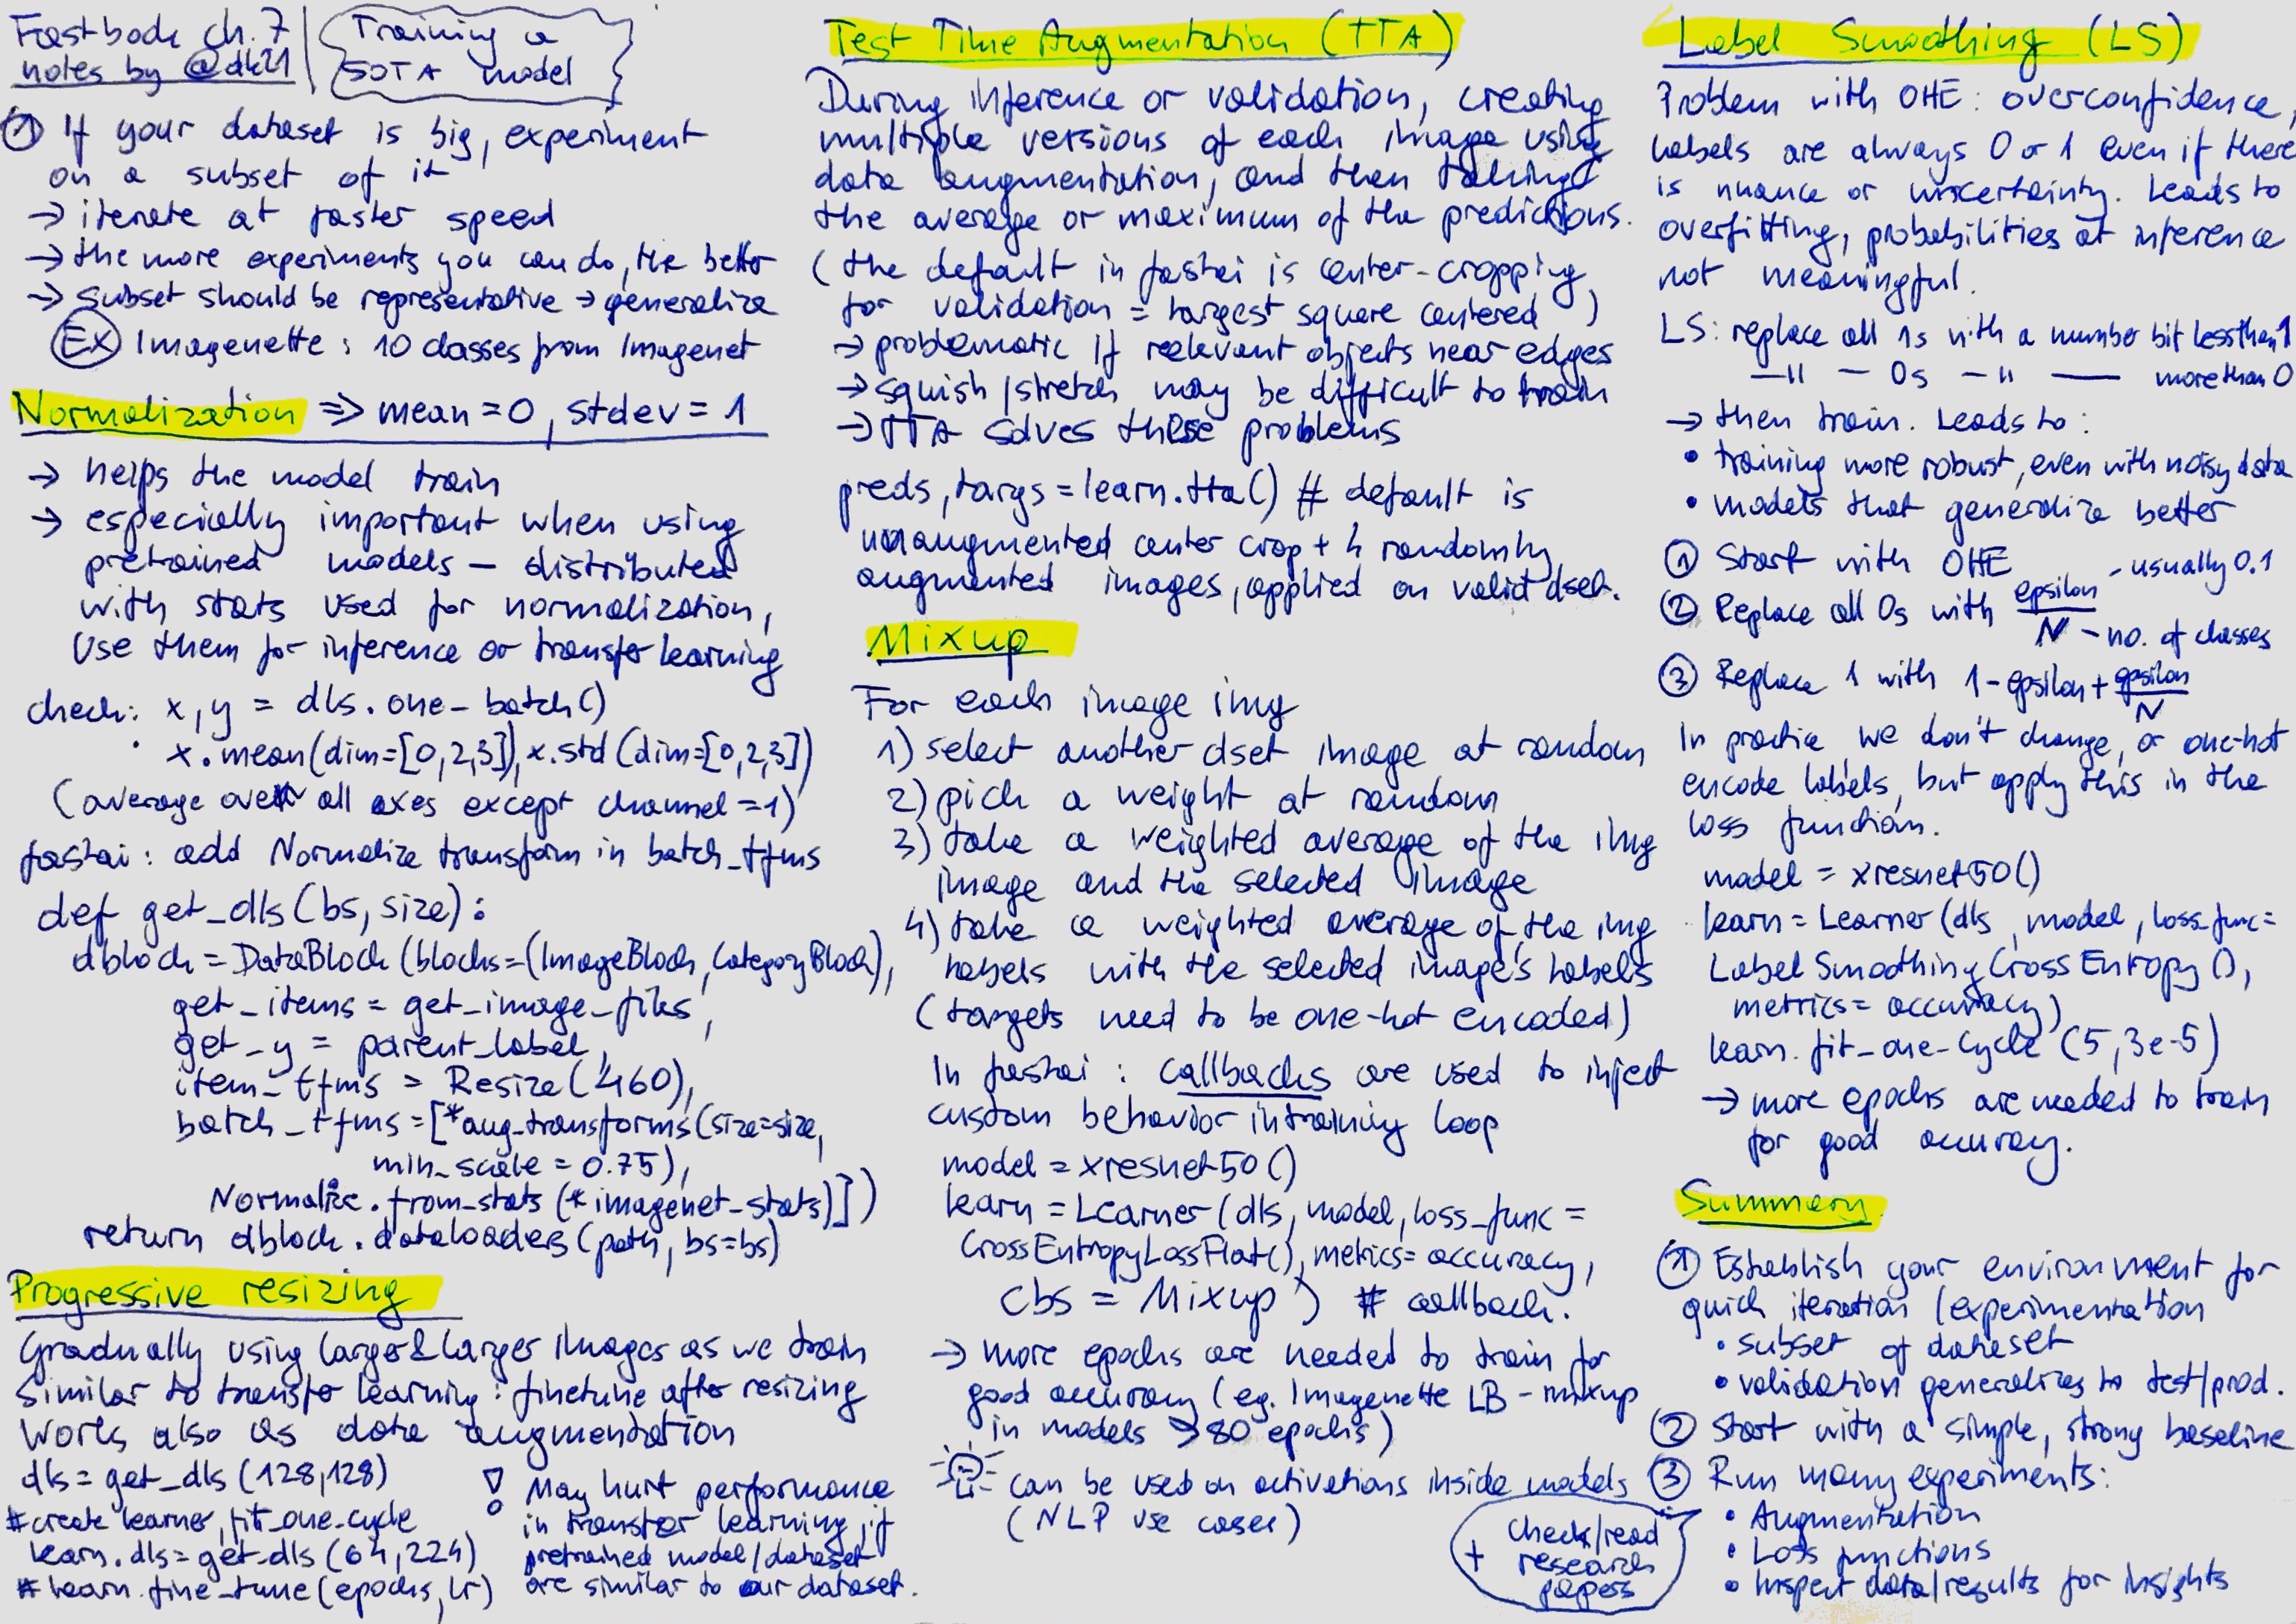 Fastbook ch. 7
notes by @dk21
Training a
SOTA model
① If your dataset is big, experiment
on a subset of it
→ iterate at faster speed
→ the more experiments you can do, the better
→ subset should be representative → generalize
Ex Imagenette: 10 classes from Imagenet
Normalization => mean = 0, stdev = 1
→ helps the model train
→ especially important when using
pretrained models – distributed
with stats used for normalization,
use them for inference or transfer learning
check: x, y = dls.one_batch()
x.mean(dim=[0,2,3]), x.std(dim=[0,2,3])
(average over all axes except channel = 1)
fastai: add Normalize transform in batch_tfms
def get_dls(bs, size):
dblock = DataBlock(blocks=(ImageBlock, CategoryBlock),
get_items = get_image_files,
get_y = parent_label,
item_tfms = Resize(460),
batch_tfms = [*aug_transforms(size=size,
min_scale = 0.75),
Normalize.from_stats(*imagenet_stats)])
return dblock.dataloaders(path, bs=bs)
Progressive resizing
Gradually using larger & larger images as we train
Similar to transfer learning: finetune after resizing
Works also as data augmentation
dls = get_dls(128,128)
#create learner, fit_one_cycle
learn.dls = get_dls(64,224)
# learn.fine_tune(epochs, lr)
! May hurt performance
in transfer learning, if
pretrained model/dataset
are similar to our dataset.
Test Time Augmentation (TTA)
During inference or validation, creating
multiple versions of each image using
data augmentation, and then taking
the average or maximum of the predictions.
(the default in fastai is center-cropping
for validation = largest square centered)
→ problematic if relevant objects near edges
→ squish/stretch may be difficult to train
→ TTA solves these problems
preds, targs = learn.tta() # default is
unaugmented center crop + 4 randomly
augmented images, applied on valid dset.
Mixup
For each image img
1) select another dset image at random
2) pick a weight at random
3) take a weighted average of the img
image and the selected image
4) take a weighted average of the img
labels with the selected image's labels
(targets need to be one-hot encoded)
In fastai: callbacks are used to inject
custom behavior in training loop
model = xresnet50()
learn = Learner(dls, model, loss_func =
CrossEntropyLossFlat(), metrics = accuracy,
cbs = Mixup) # callback.
→ more epochs are needed to train for
good accuracy (eg. Imagenette LB – mixup
in models > 80 epochs)
can be used on activations inside models
(NLP use cases)
+ check/read
research
papers
Label Smoothing (LS)
Problem with OHE: overconfidence,
labels are always 0 or 1 even if there
is nuance or uncertainty. Leads to
overfitting, probabilities at inference
not meaningful.
LS: replace all 1s with a number bit less than 1
—"— 0s —"— more than 0
→ then train. Leads to:
• training more robust, even with noisy data
• models that generalize better
① Start with OHE
② Replace all 0s with epsilon/N – usually 0.1
– no. of classes
③ Replace 1 with 1 - epsilon + epsilon/N
In practice we don't change, or one-hot
encode labels, but apply this in the
loss function.
model = xresnet50()
learn = Learner(dls, model, loss_func =
LabelSmoothingCrossEntropy(),
metrics = accuracy)
learn.fit_one_cycle(5, 3e-5)
→ more epochs are needed to train
for good accuracy.
Summary
① Establish your environment for
quick iteration/experimentation
• subset of dataset
• validation generalizes to test/prod.
② Start with a simple, strong baseline
③ Run many experiments:
• Augmentation
• Loss functions
• Inspect data/results for insights